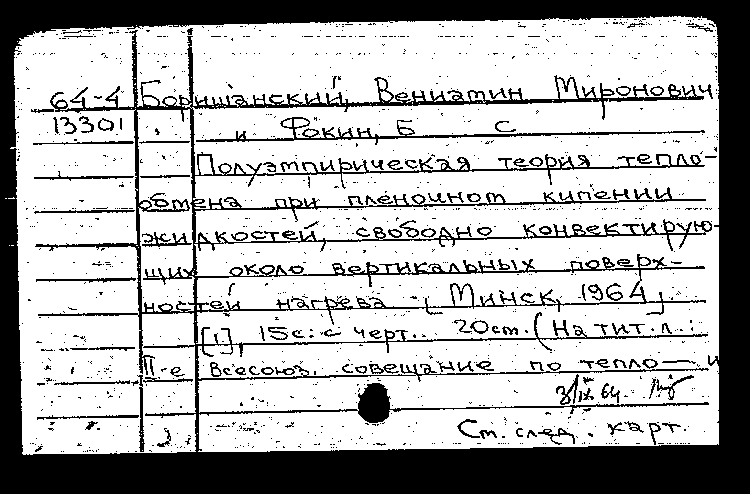 64-4 Боришанский, Вениамин Миронович
13301 и Фокин, Б С
Полуэмпирическая теория тепло-
обмена при пленочном кипении
жидкостей, свободно конвектирую-
щих около вертикальных поверх-
ностей нагрева [Минск, 1964]
[1], 15с. с черт. 20см. (На тит. л.:
II-е Всесоюз. совещание по тепло- и
3/IX 64.
См. след. карт.